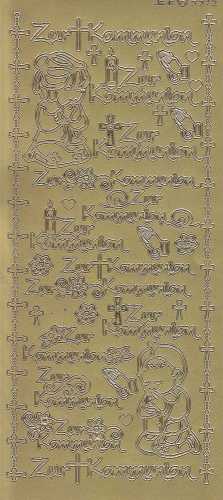 Zur Kommunion
Zur
Kommunion
Zur
Kommunion
Zur Kommunion
Zur
Kommunion
Zur
Kommunion
Zur Kommunion
Zur Kommunion
Zur
Kommunion
Zur
Kommunion
Zur
Kommunion
Zur
Kommunion
Zur Kommunion